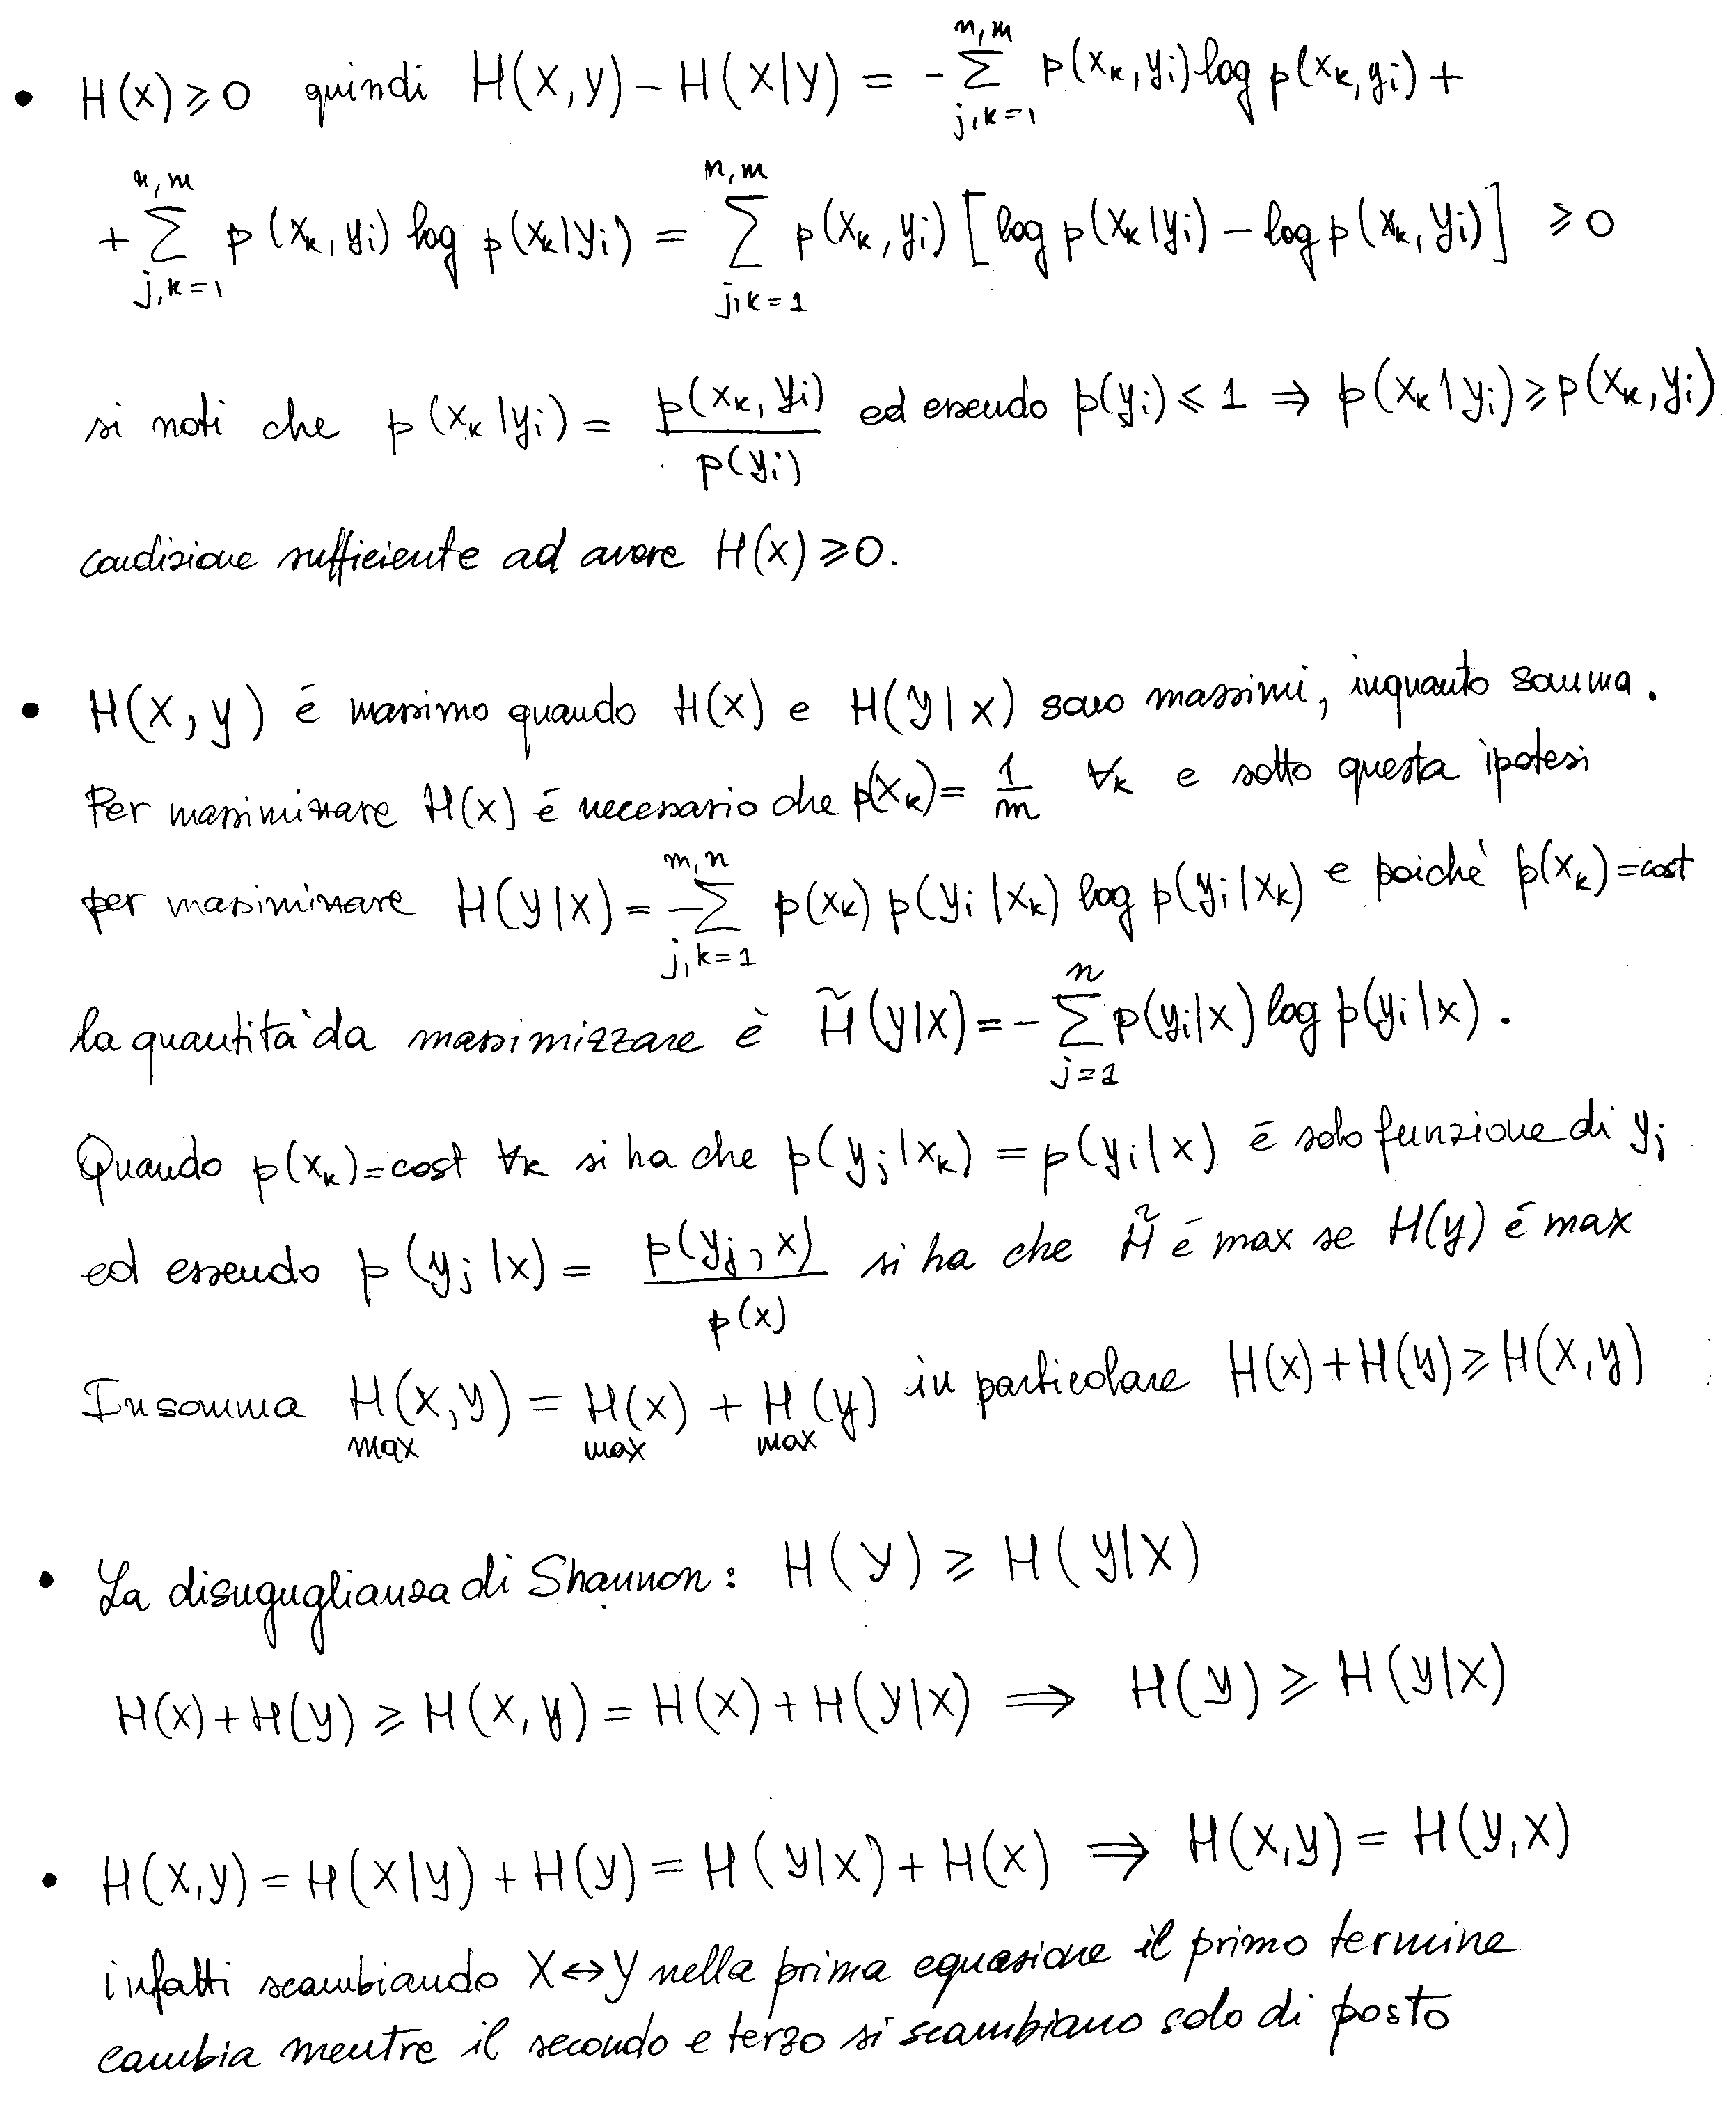 • H(x) ⩾ 0 quindi H(x,y) − H(x|y) = −∑_{j,k=1}^{n,m} p(x_k, y_j) log p(x_k, y_j) +
+ ∑_{j,k=1}^{n,m} p(x_k, y_j) log p(x_k|y_j) = ∑_{j,k=1}^{n,m} p(x_k, y_j) [log p(x_k|y_j) − log p(x_k, y_j)] ⩾ 0
si noti che p(x_k|y_j) = p(x_k, y_j) / p(y_j) ed essendo p(y_j) ⩽ 1 ⇒ p(x_k|y_j) ⩾ p(x_k, y_j)
condizione sufficiente ad avere H(x) ⩾ 0.
• H(x,y) é massimo quando H(x) e H(y|x) sono massimi, inquanto somma.
Per massimizzare H(x) é necessario che p(x_k) = 1/m ∀k e sotto questa ipotesi
per massimizzare H(y|x) = −∑_{j,k=1}^{m,n} p(x_k) p(y_j|x_k) log p(y_j|x_k) e poichè p(x_k) = cost
la quantità da massimizzare è H̃(y|x) = −∑_{j=1}^{n} p(y_j|x) log p(y_j|x).
Quando p(x_k) = cost ∀k si ha che p(y_j|x_k) = p(y_j|x) é solo funzione di y_j
ed essendo p(y_j|x) = p(y_j, x) / p(x) si ha che H̃ é max se H(y) é max
Insomma H_max(x,y) = H_max(x) + H_max(y) in particolare H(x) + H(y) ⩾ H(x,y)
• La disuguglianza di Shannon: H(y) ⩾ H(y|x)
H(x) + H(y) ⩾ H(x,y) = H(x) + H(y|x) ⇒ H(y) ⩾ H(y|x)
• H(x,y) = H(x|y) + H(y) = H(y|x) + H(x) ⇒ H(x,y) = H(y,x)
infatti scambiando x↔y nella prima equazione il primo termine
cambia mentre il secondo e terzo si scambiano solo di posto